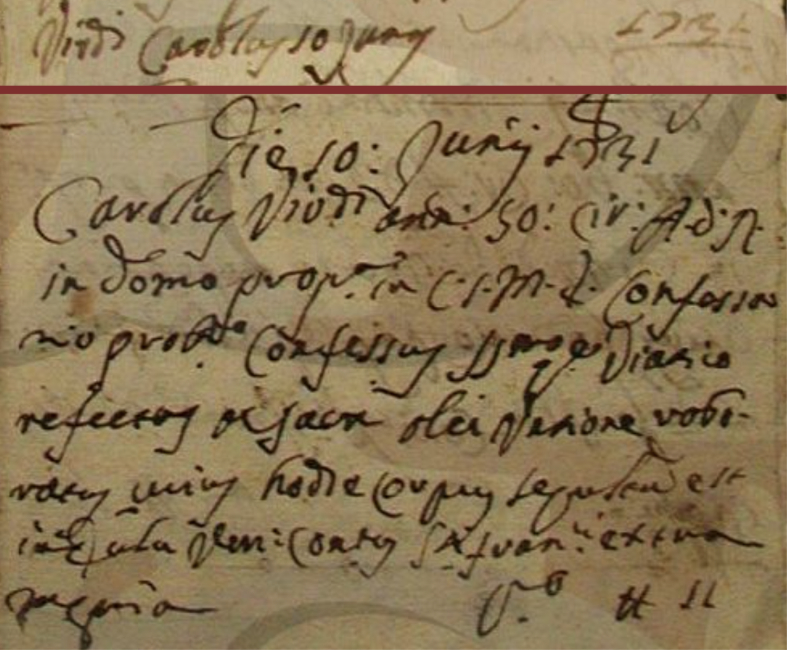 Virdi Carolus 10 Junij 1731
Die 10: Junij 1731
Carolus Virdi ann: 50: Cir: A.d.R.
in domo prop.a in C.S.M.E. Confessa
rio prob.to Confessus SSmoq. Viatico
refectus et sacri olei Unione robo-
ratus cuius hodie Corpus sepultu est
in Ecclia Ven: Contus S. Fran.ci extra
menia